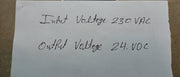 Intut Valtage 230 VAC
Outfut Valtage 24.VDC